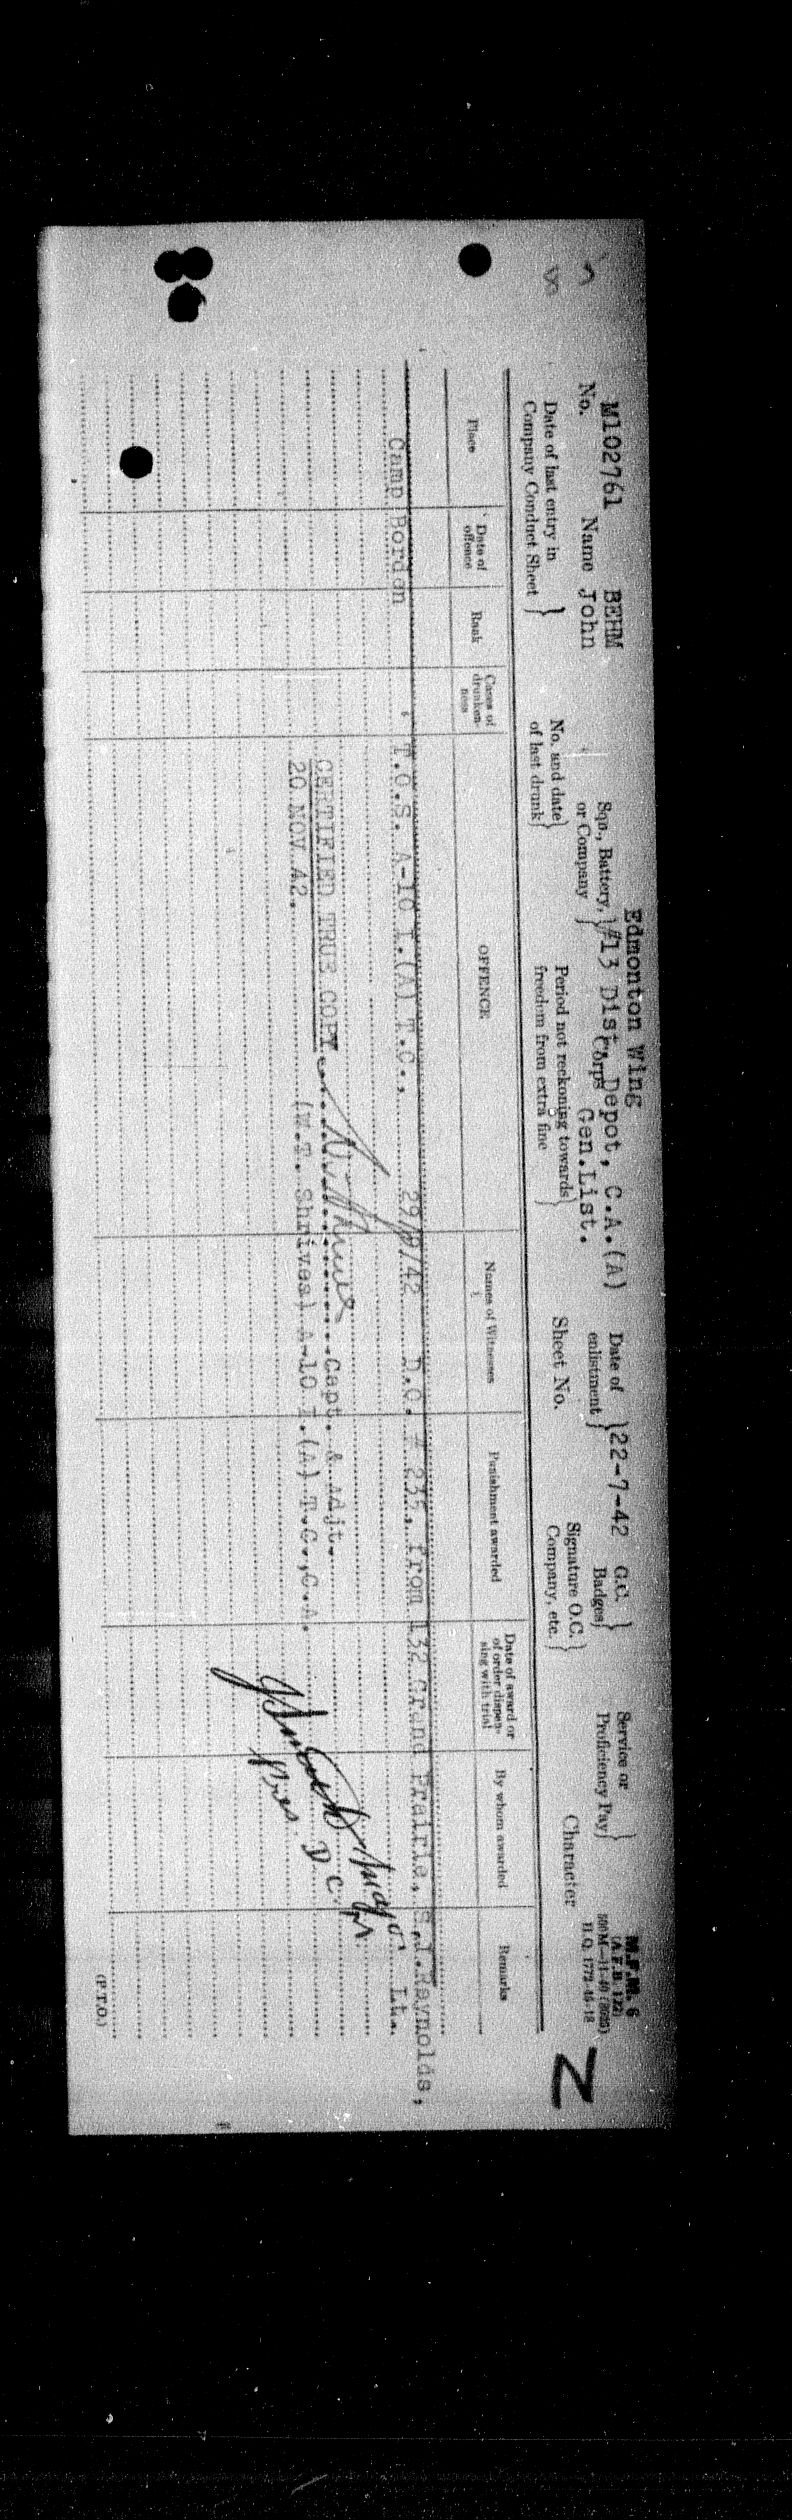 Edmonton Wing
M102761 BEHM Sqn., Battery, } #13 Dist. Depot, C.A.(A) Date of } 22-7-42 G.C. } Service or } M.F.M. 6
No. Name John or Company Corps Gen.List. enlistment Badges Proficiency Pay (A.F.B. 122)
500M—11-40 H.Q. 1772-45-18
Date of last entry in } No. and date } Period not reckoning towards } Sheet No. Signature O.C. } Character
Company Conduct Sheet of last drunk freedom from extra fine Company, etc.
Z
Place Date of offence Rank Cases of drunkenness OFFENCE Names of Witnesses Punishment awarded Date of award or of order dispensing with trial By whom awarded Remarks
Camp Borden T.O.S. A-10 I.(A) T.C., 29/9/42 D.O. # 235, from 132 Grand Prairie, Raynolds,
Lt.
CERTIFIED TRUE COPY. Capt. & Adjt.
20 NOV. 42. (W.T. Shrives) A-10 I.(A) T.C.,C.A.
Major
Pres D.C.
(P.T.O.)